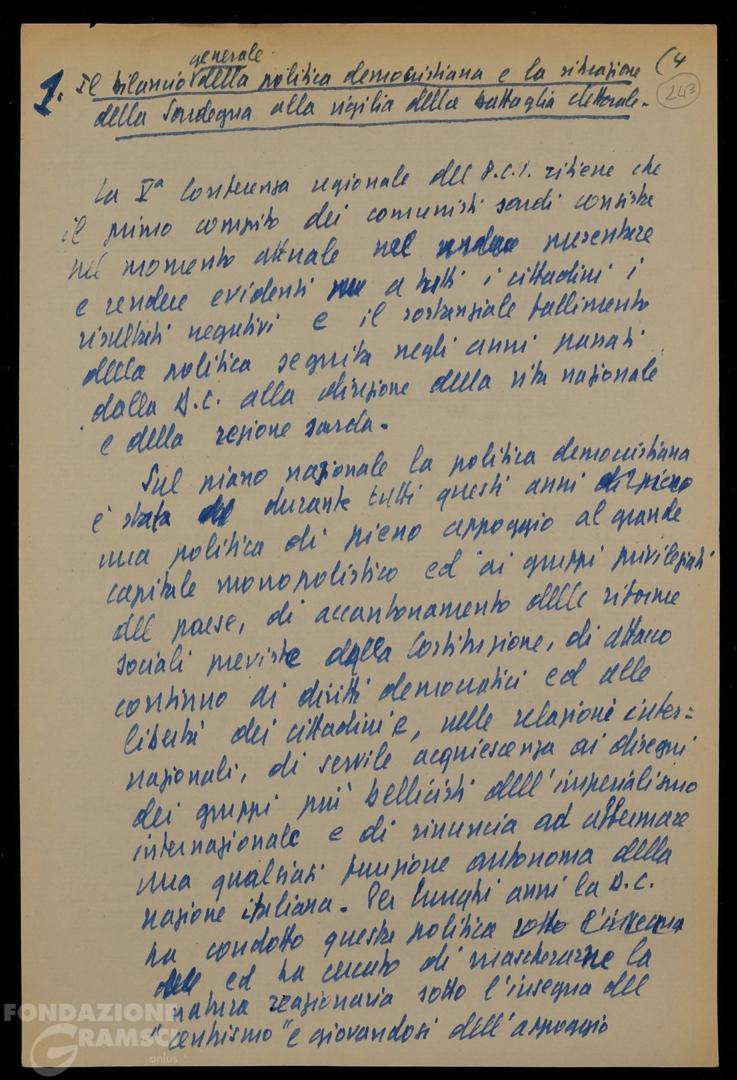 (4
243
generale
1. Il bilancio della politica democristiana e la situazione
della Sardegna alla vigilia della battaglia elettorale.
La Vª Conferenza regionale del P.C.I. ritiene che
il primo compito dei comunisti sardi consiste
nel momento attuale nel presentare
e rendere evidenti a tutti i cittadini i
risultati negativi e il sostanziale fallimento
della politica seguita negli anni passati
dalla D.C. alla direzione della vita nazionale
e della regione sarda.
Sul piano nazionale la politica democristiana
è stata durante tutti questi anni di pieno
una politica di pieno appoggio al grande
capitale monopolistico ed ai gruppi privilegiati
del paese, di accantonamento delle riforme
sociali previste dalla Costituzione, di attacco
continuo ai diritti democratici ed alle
libertà dei cittadini e, nelle relazioni inter=
nazionali, di servile acquiescenza ai disegni
dei gruppi più bellicisti dell'imperialismo
internazionale e di rinuncia ad affermare
una qualsiasi funzione autonoma della
nazione italiana. Per lunghi anni la D.C.
ha condotto questa politica sotto l'insegna
ed ha cercato di mascherarne la
natura reazionaria sotto l'insegna del
"centrismo" e giovandosi dell'appoggio
FONDAZIONE
GRAMSCI
onlus